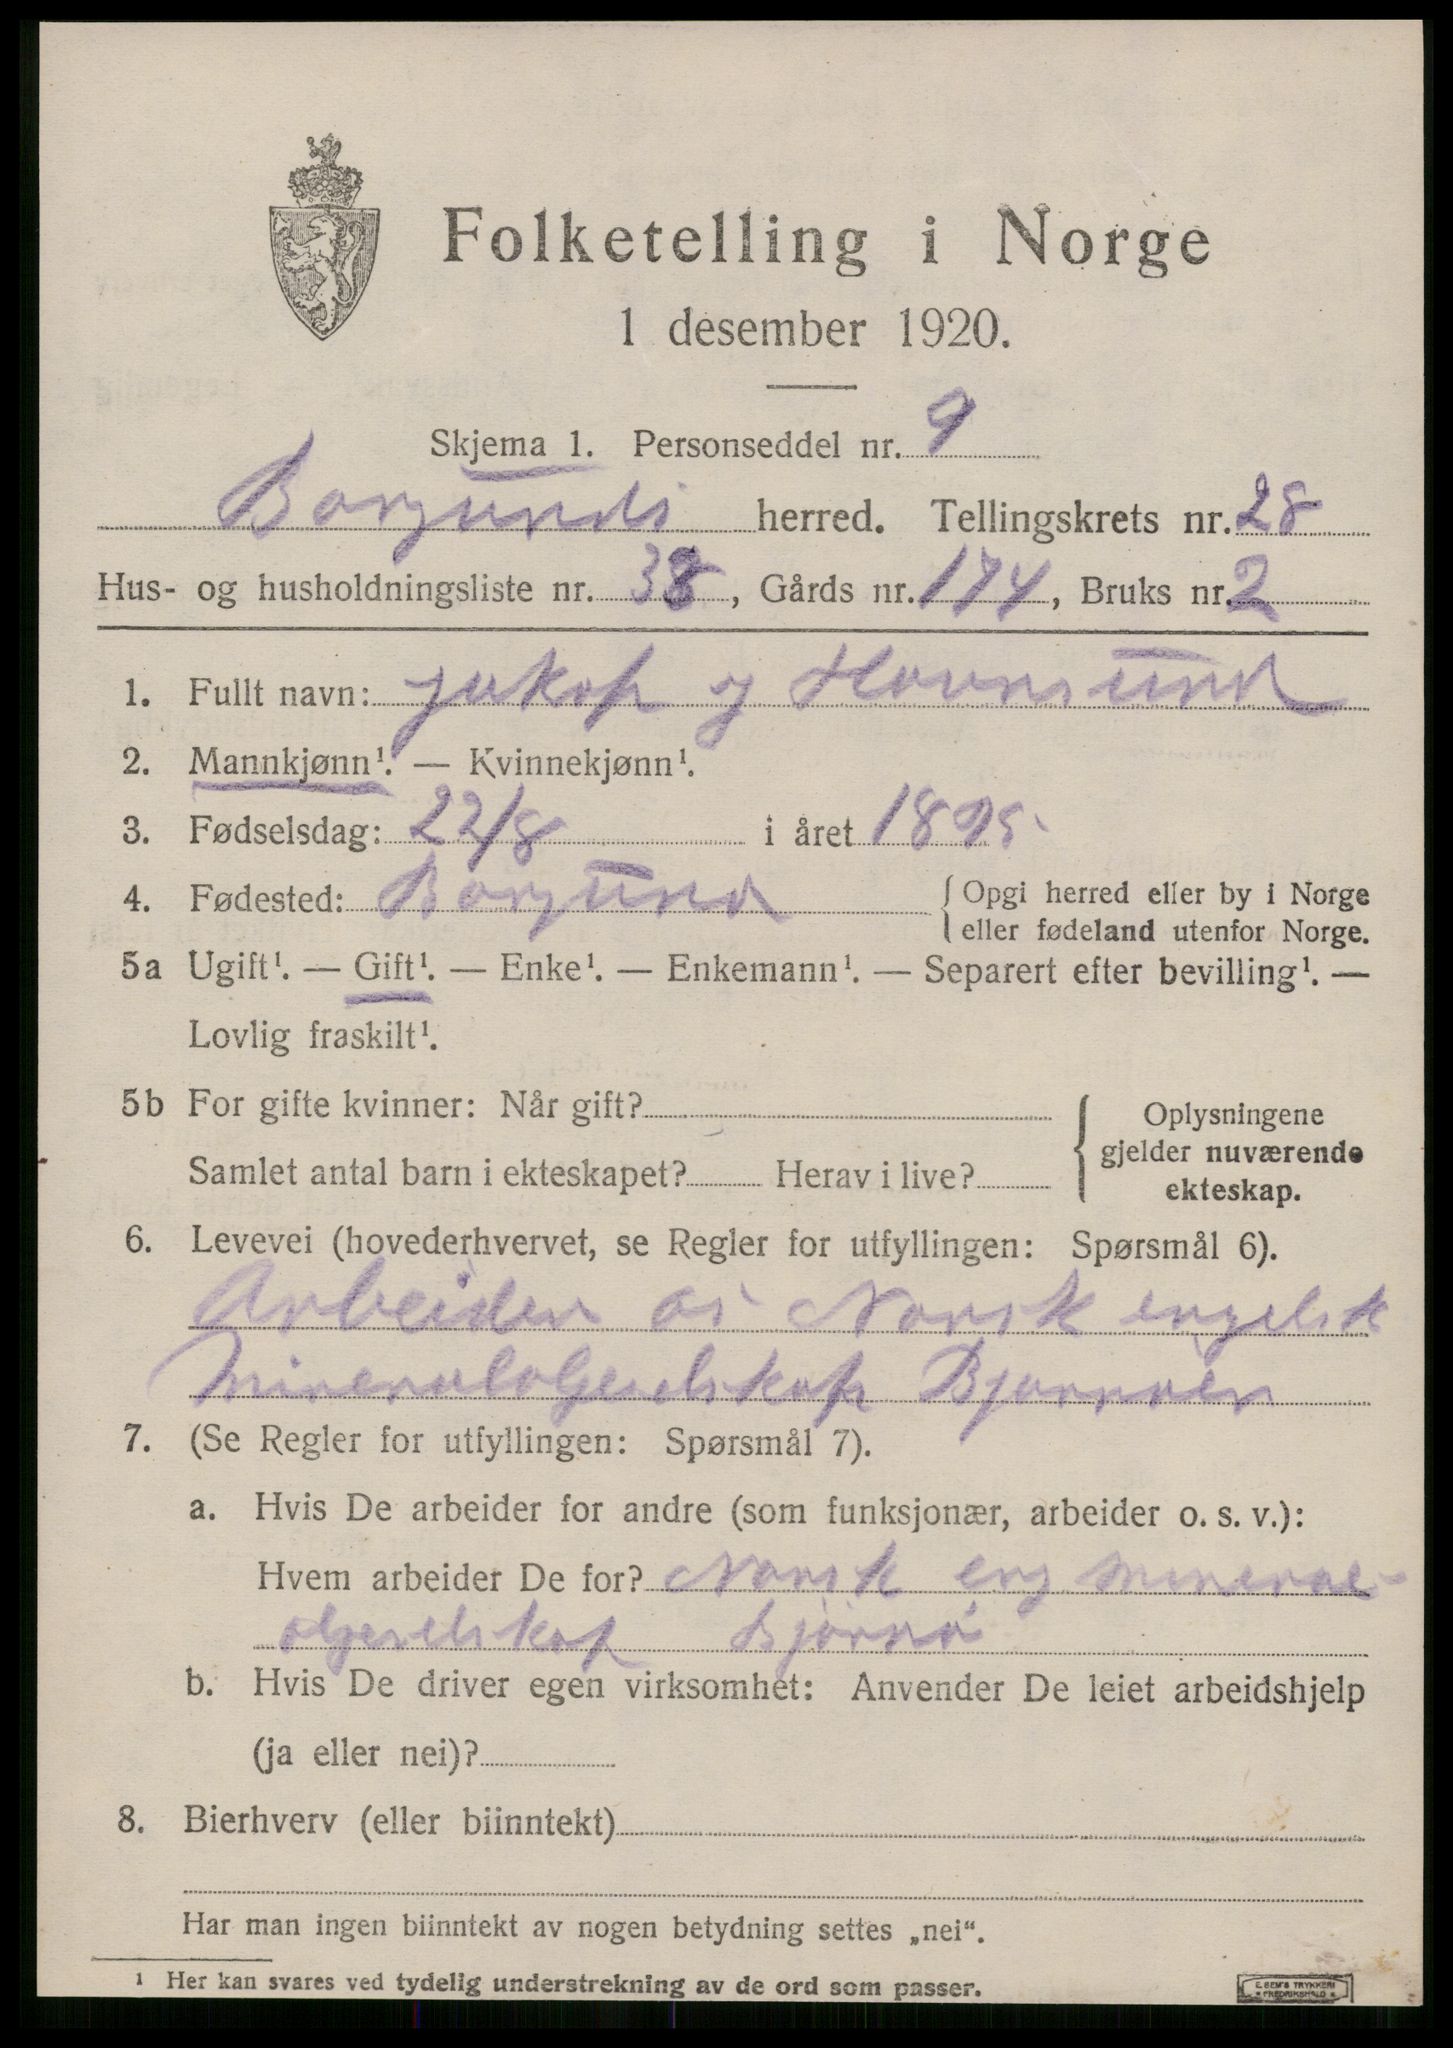 Folketelling i Norge
1 desember 1920.
Skjema 1. Personseddel nr. 9
Borgund herred. Tellingskrets nr. 28
Hus- og husholdningsliste nr. 38, Gårds nr. 174, Bruks nr. 2
1. Fullt navn: Jakop J Havnsund
2. Mannkjønn¹. — Kvinnekjønn¹.
3. Fødselsdag: 22/8 i året 1895
4. Fødested: Borgund { Opgi herred eller by i Norge
eller fødeland utenfor Norge.
5a Ugift¹. — Gift¹. — Enke¹. — Enkemann¹. — Separert efter bevilling¹. —
Lovlig fraskilt¹.
5b For gifte kvinner: Når gift?
Samlet antal barn i ekteskapet? Herav i live?
Oplysningene
gjelder nuværende
ekteskap.
6. Levevei (hovederhvervet, se Regler for utfyllingen: Spørsmål 6).
Arbeider Norsk engelsk
Mineralolgeselskap
7. (Se Regler for utfyllingen: Spørsmål 7).
a. Hvis De arbeider for andre (som funksjonær, arbeider o. s. v.):
Hvem arbeider De for? Norsk eng Mineral-
olgeselskap Bjørnø
b. Hvis De driver egen virksomhet: Anvender De leiet arbeidshjelp
(ja eller nei)?
8. Bierhverv (eller biinntekt)
Har man ingen biinntekt av nogen betydning settes „nei“.
¹ Her kan svares ved tydelig understrekning av de ord som passer.
E. SEM'S TRYKKERI
FREDRIKSHALD